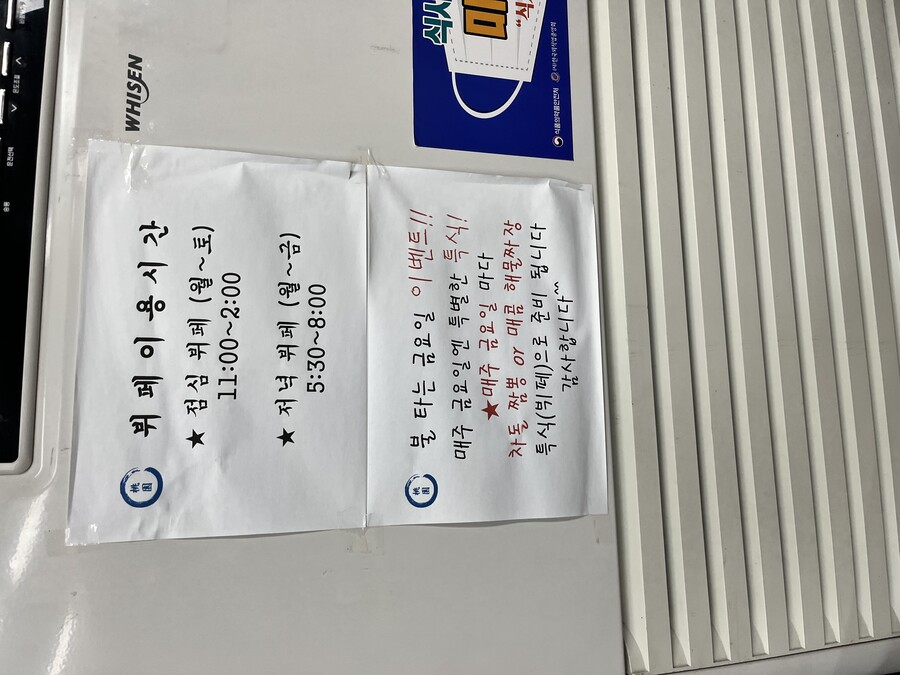 WHISEN
운전선택
온도조절
송풍
식사
마
"식
식품의약품안전처
(사)한국외식업중앙회
桃園
뷔페이용시간
★ 점심 뷔페 (월~토)
11:00~2:00
★ 저녁 뷔페 (월~금)
5:30~8:00
桃園
불 타는 금요일 이벤트!!
매주 금요일엔 특별한 특식!
★매주 금요일 마다
차돌 짬뽕 or 매콤 해물짜장
특식(뷔페)으로 준비 됩니다
감사합니다^^